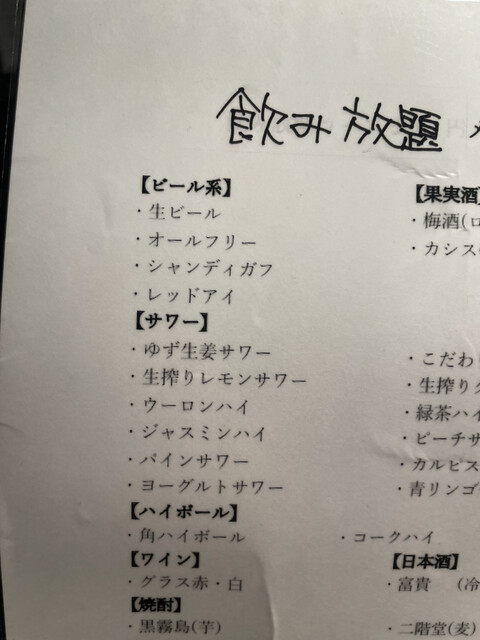 飲み放題
【ビール系】
・生ビール
・オールフリー
・シャンディガフ
・レッドアイ
【サワー】
・ゆず生姜サワー
・生搾りレモンサワー
・ウーロンハイ
・ジャスミンハイ
・パインサワー
・ヨーグルトサワー
【ハイボール】
・角ハイボール
・コークハイ
【ワイン】
・グラス赤・白
【焼酎】
・黒霧島(芋)
【果実酒】
・梅酒(ロ
・カシス
・こだわり
・生搾り
・緑茶ハイ
・ピーチサ
・カルピス
・青リンゴ
【日本酒】
・富貴 (冷
・二階堂(麦)